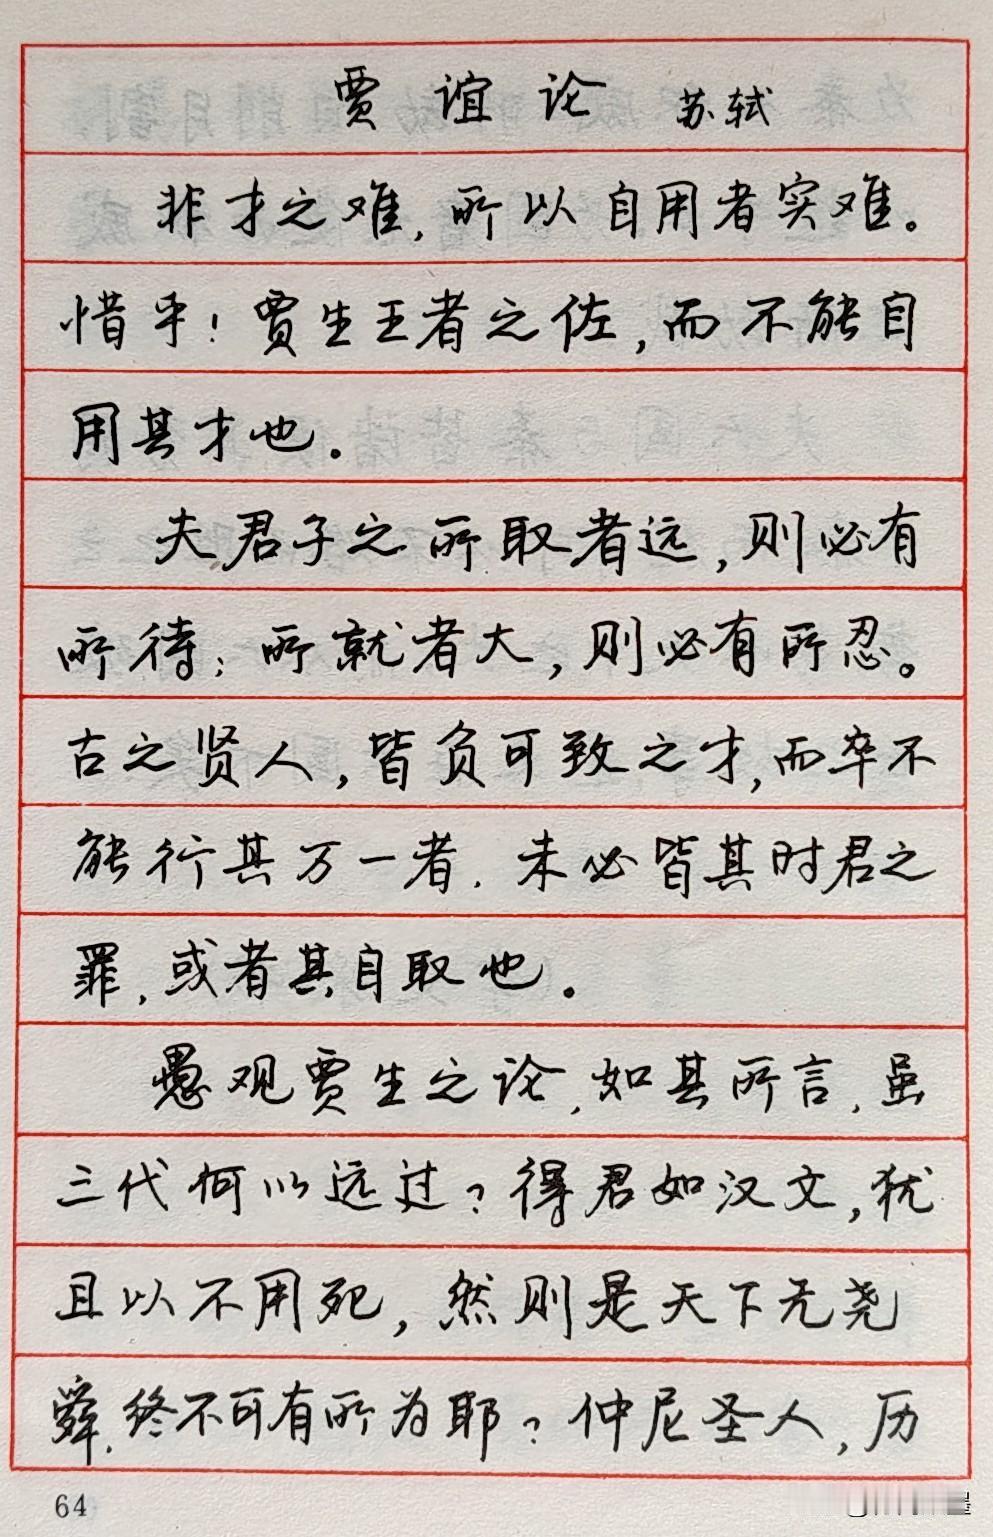 贾谊论 苏轼
非才之难,所以自用者实难。
惜乎!贾生王者之佐,而不能自
用其才也.
夫君子之所取者远,则必有
所待;所就者大,则必有所忍。
古之贤人,皆负可致之才,而卒不
能行其万一者.未必皆其时君之
罪,或者其自取也.
愚观贾生之论,如其所言,虽
三代何以远过?得君如汉文,犹
且以不用死,然则是天下无尧
舜,终不可有所为耶?仲尼圣人,历
64